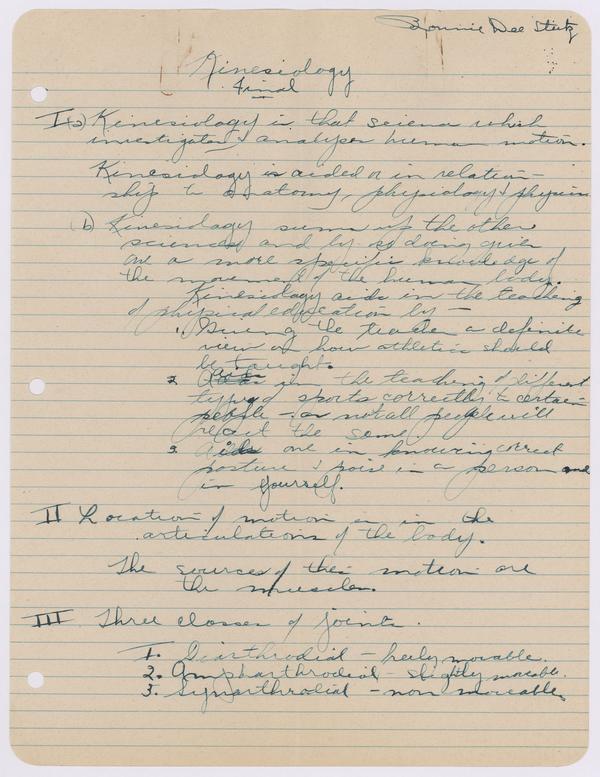 Bonnie Dee Stutz
Kinesiology
Final
I (a) Kinesiology is that science which
investigates & analyses human motion.
Kinesiology is aided or in relation-
ship to anatomy, physiology & physics
(b) Kinesiology sums up the other
sciences and by so doing gives
one a more specific knowledge of
the movement of the human body.
Kinesiology aids in the teaching
of physical education by —
1. Giving the teacher a definite
view of how athletics should
be taught.
2. Aids in the teaching of different
types of sports correctly to certain
people - as not all people will
react the same
3. Aids one in knowing correct
posture & poise in a person and
in yourself.
II Location of motion is in the
articulations of the body.
The sources of this motion are
the muscles.
III Three classes of joints.
1. Diarthrodial - freely movable.
2. Amphiarthrodial - slightly movable.
3. Synarthrodial - non moveable.